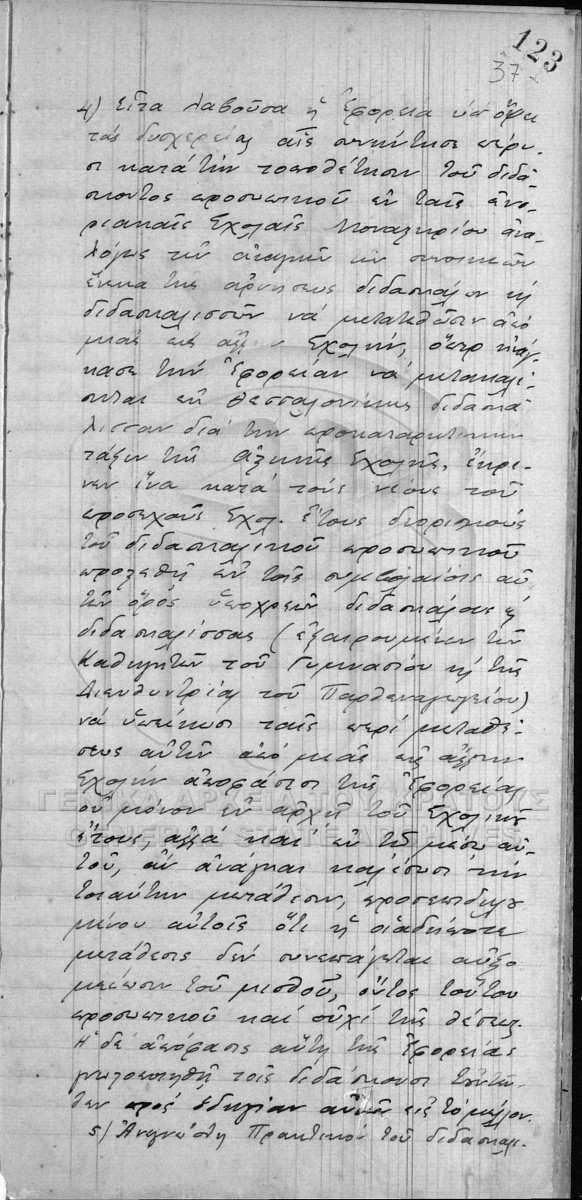 123
37
4) Εἶτα λαβοῦσα ἡ Ἐφορεία ὑπ' ὄψει
τάς δυσχερείας αἷς συνήντησε πέρυ-
σι κατά τήν τοποθέτησιν τοῦ διδά-
σκοντος προσωπικοῦ ἐν ταῖς ἐνο-
ριακαῖς Σχολαῖς Μοναστηρίου ἀνα-
λόγως τῶν ἀναγκῶν τῶν συνοικιῶν
ἕνεκα τῆς ἀρνήσεως διδασκάλων ἤ
διδασκαλισσῶν νά μετατεθῶσιν ἀπό
μιᾶς εἰς ἄλλην Σχολήν, ὅπερ ἠνάγ-
κασε τήν Ἐφορείαν νά μετακαλέ-
σηται ἐκ Θεσσαλονίκης διδασκά-
λισσαν διά τήν προκαταρκτικήν
τάξιν τῆς Σχολῆς, ἔκρι-
νεν ἵνα κατά τούς νέους τοῦ
προσεχοῦς Σχολ. ἔτους διορισμούς
τοῦ διδασκαλικοῦ προσωπικοῦ
προστεθῇ ἐν τοῖς συμβολαίοις αὐ-
τῶν ὅρος ὑποχρεῶν διδασκάλους ἤ
διδασκαλίσσας (ἐξαιρουμένων τῶν
Καθηγητῶν τοῦ Γυμνασίου ἤ τῆς
Διευθυντρίας τοῦ Παρθεναγωγείου)
νά ὑπείκωσι ταῖς περί μεταθέ-
σεως αὐτῶν ἀπό μιᾶς εἰς ἄλλην
Σχολήν ἀποφάσεσι τῆς Ἐφορείας
οὐ μόνον ἐν ἀρχῇ τοῦ Σχολικοῦ
ἔτους, ἀλλά καί ἐν τῷ μέσῳ αὐ-
τοῦ, ἄν ἀνάγκαι καλέσωσι τήν
τοιαύτην μετάθεσιν, προσεπιδηλου-
μένου αὐτοῖς ὅτι ἡ οἱαδήποτε
μετάθεσις δέν συνεπάγεται αὐξο-
μείωσιν τοῦ μισθοῦ, ὄντος τούτου
προσωπικοῦ καί οὐχί τῆς θέσεως.
Ἡ δέ ἀπόφασις αὕτη τῆς Ἐφορείας
γνωστοποιηθῇ τοῖς διδάσκουσι ἐντεῦ-
θεν πρός ὁδηγίαν αὐτῶν εἰς τό μέλλον.
5) Ἀνεγνώσθη Πρακτικόν τοῦ διδασκαλι-
ΓΕΝΙΚΑ ΑΡΧΕΙΑ ΤΟΥ ΚΡΑΤΟΥΣ
GENERAL STATE ARCHIVES